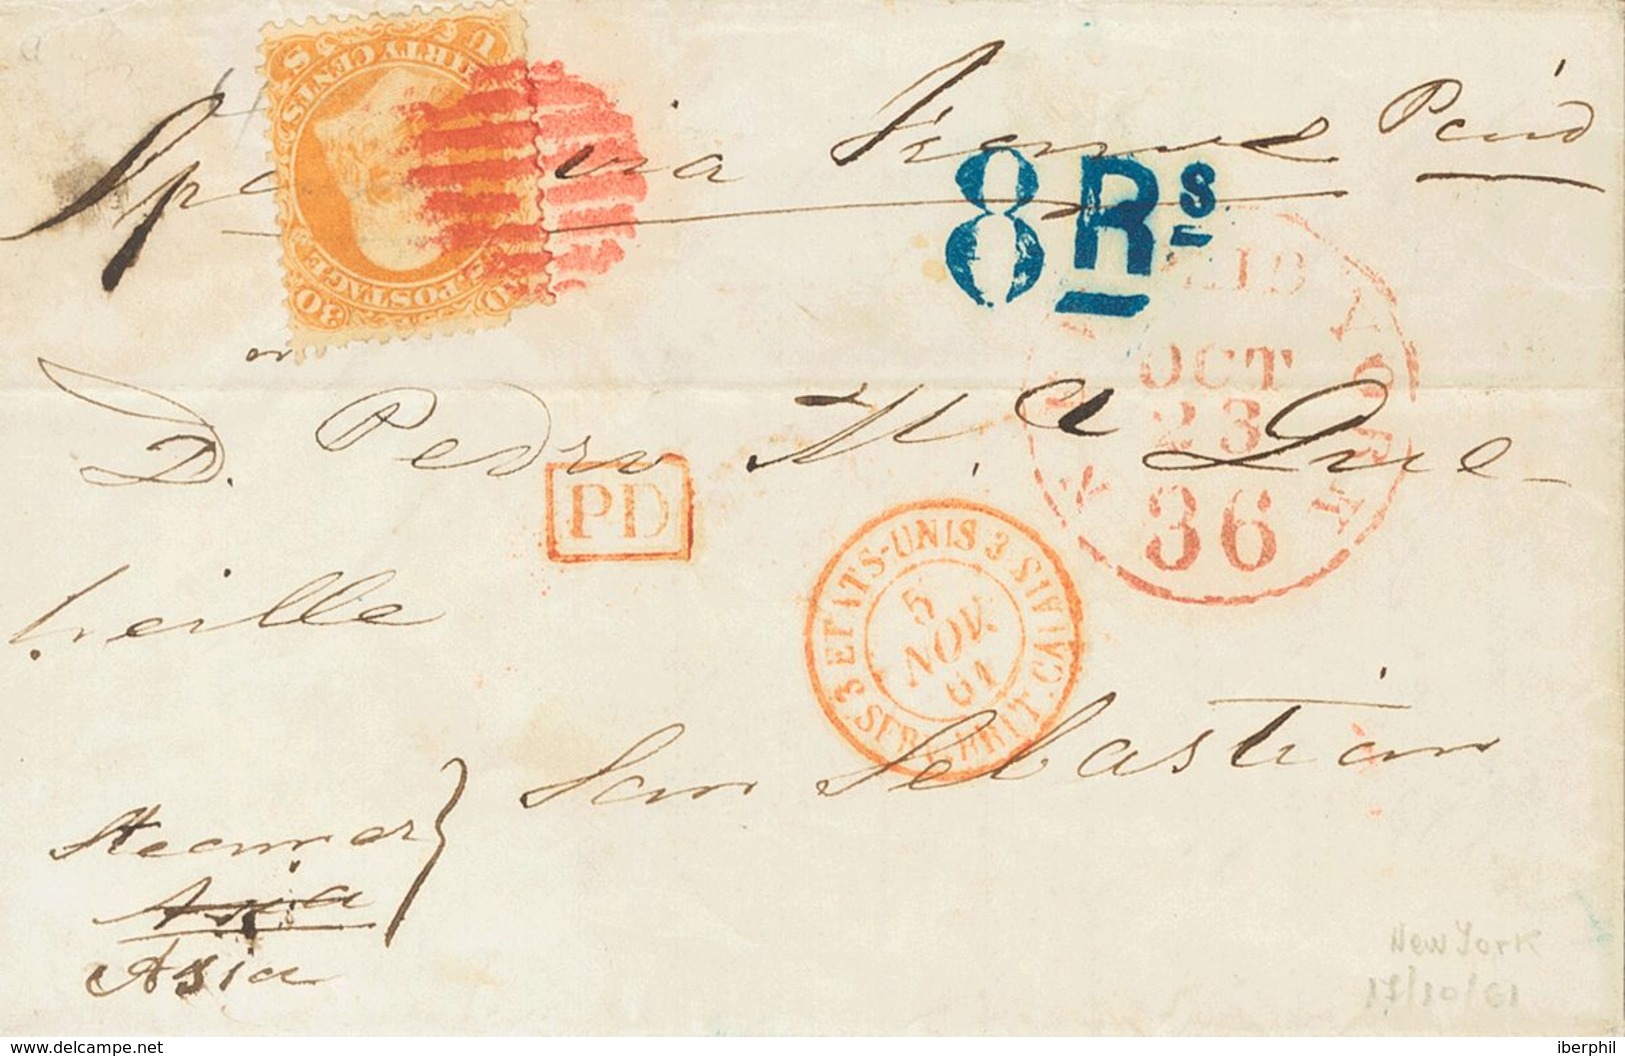 U S
THIRTY CENTS
POSTAGE
30
Spa via France Paid
8 Rs
PAID
OCT
23
36
D. Pedro Ma. Que-
heille
PD
3 ETATS-UNIS 3 SERV. BRIT. CALAIS
5
NOV.
61
San Sebastian
Steamer
Asia
Asia
New York
17/10/61
www.delcampe.net
iberphil